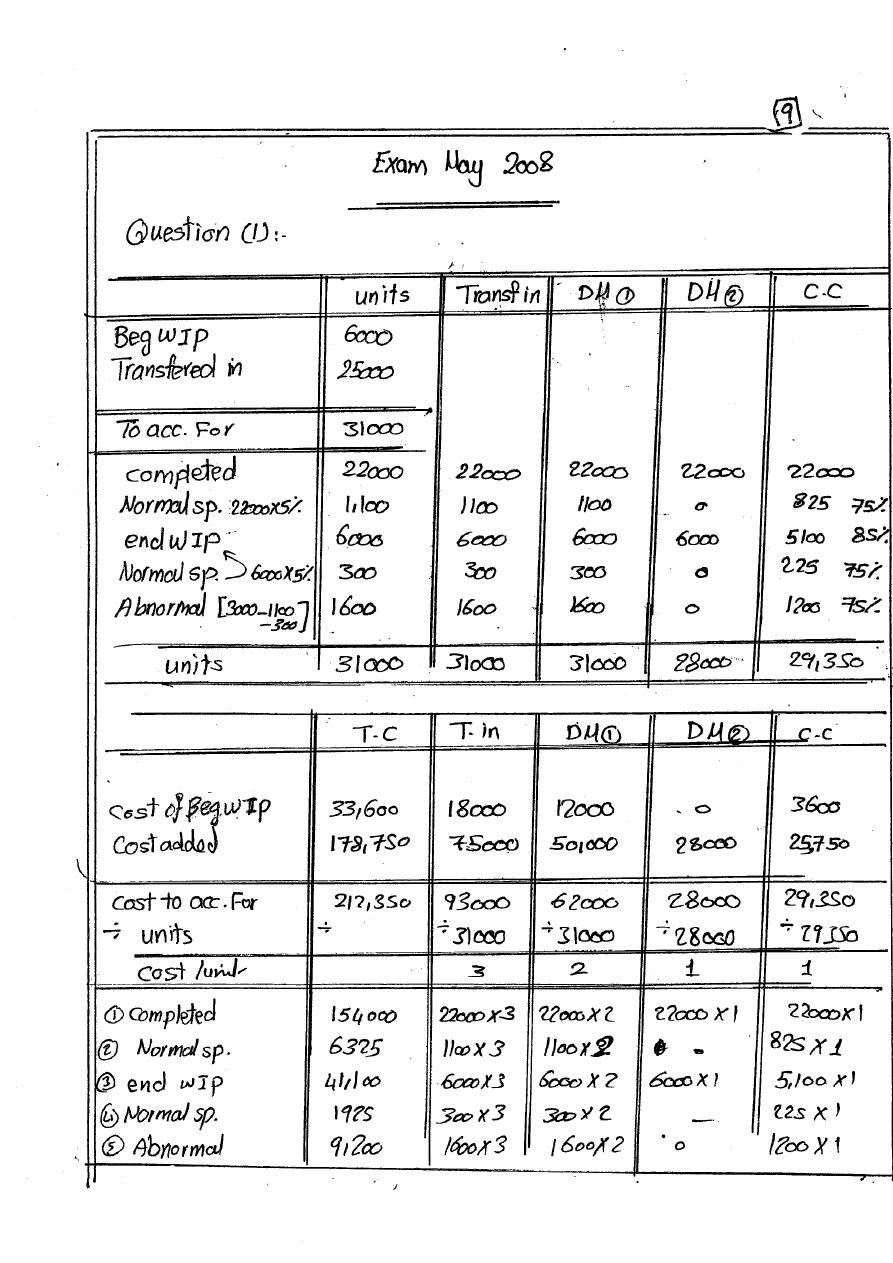 9
Exam May 2008
Question (1):-
units Transf in DM① DM② C.C
Beg WIP 6000
Transfered in 25000
To acc. For 31000
completed 22000 22000 22000 22000 22000
Normal sp. 22000x5% 1,100 1100 1100 0 825 75%
end WIP 6000 6000 6000 6000 5100 85%
Normal sp. 6000x5% 300 300 300 0 225 75%
Abnormal [3000-1100 -300] 1600 1600 1600 0 1200 75%
units 31000 31000 31000 28000 29,350
T-C T-in DM① DM② C-C
Cost of Beg WIP 33,600 18000 12000 0 3600
Cost added 178,750 75000 50,000 28000 25,750
Cost to acc. For 212,350 93000 62000 28000 29,350
÷ units ÷ ÷31000 ÷31000 ÷28000 ÷29350
Cost /unit 3 2 1 1
① Completed 154000 22000x3 22000x2 22000x1 22000x1
② Normal sp. 6325 1100x3 1100x2 - 825x1
③ end WIP 41,100 6000x3 6000x2 6000x1 5,100x1
④ Normal sp. 1925 300x3 300x2 — 225x1
⑤ Abnormal 9,200 1600x3 1600x2 0 1200x1